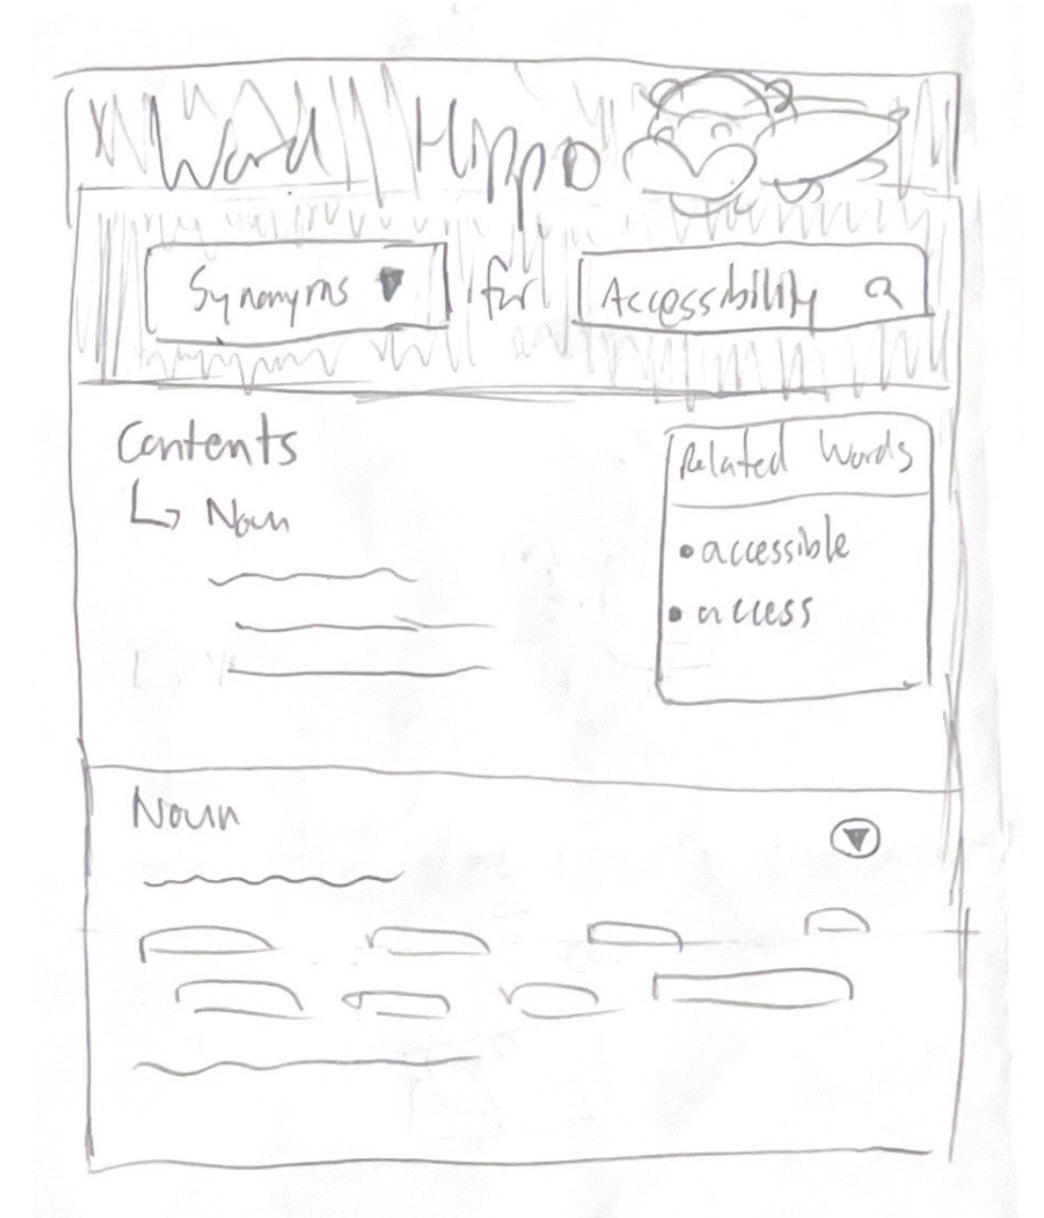 Word Hippo
Synonyms for Accessibility
Contents
Noun
Related Words
accessible
access
Noun